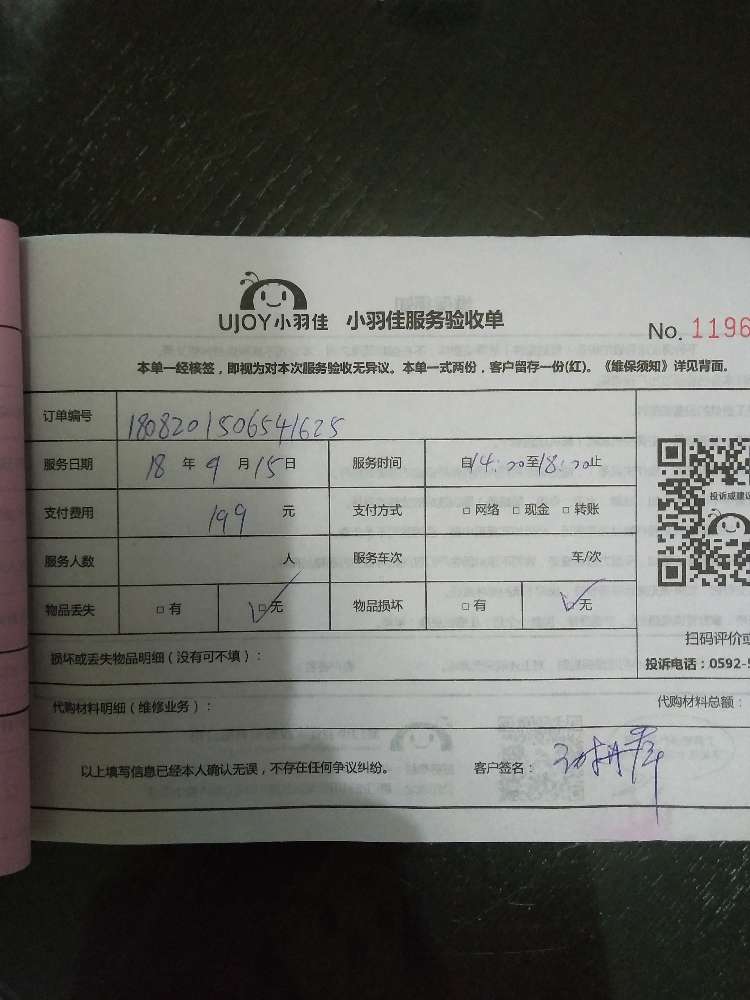 UJOY小羽佳 小羽佳服务验收单
No. 1196
本单一经核签，即视为对本次服务验收无异议。本单一式两份，客户留存一份(红)。《维保须知》详见背面。
订单编号 1808201506541625
服务日期 18 年 9 月 15 日 服务时间 自 14:00 至 18:00 止
支付费用 199 元 支付方式 □ 网络 □ 现金 □ 转账
服务人数 人 服务车次 车/次
物品丢失 □ 有 ☑ 无 物品损坏 □ 有 ☑ 无
投诉或建议
扫码评价或
损坏或丢失物品明细（没有可不填）：
投诉电话：0592-5
代购材料明细（维修业务）：
代购材料总额：
以上填写信息已经本人确认无误，不存在任何争议纠纷。 客户签名：